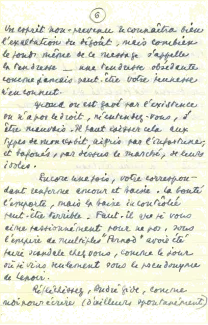 6
Un esprit non-prévenu reconnaîtra bien
l'exaltation du disant, mais combien
le fond même de ce message s'appelle
la tendresse - une tendresse obsédante
comme jamais peut-être votre jeunesse
n'en connut.
Quand on est gavé par l'existence
on n'a pas le droit, m'entendez-vous, d'
être mauvais. Il faut laisser cela aux
types de mon esprit aigris par l'infortune,
et bafoués, par dessus le marché, de leurs
idoles.
Encore une fois, votre correspon-
dant renferme amour et haine. La bonté
l'emporte, mais la haine incontrôlée
peut-être terrible. Faut-il que je vous
aime passionnément pour ne pas, sous
l'empire de multiples "Pernod" avoir été
faire scandale chez vous, comme le jour
où je vins seulement sous le pseudonyme
de Lenoir.
Réfléchissez, André Gide, comme
moi pour écrire (d'ailleurs spontanément)